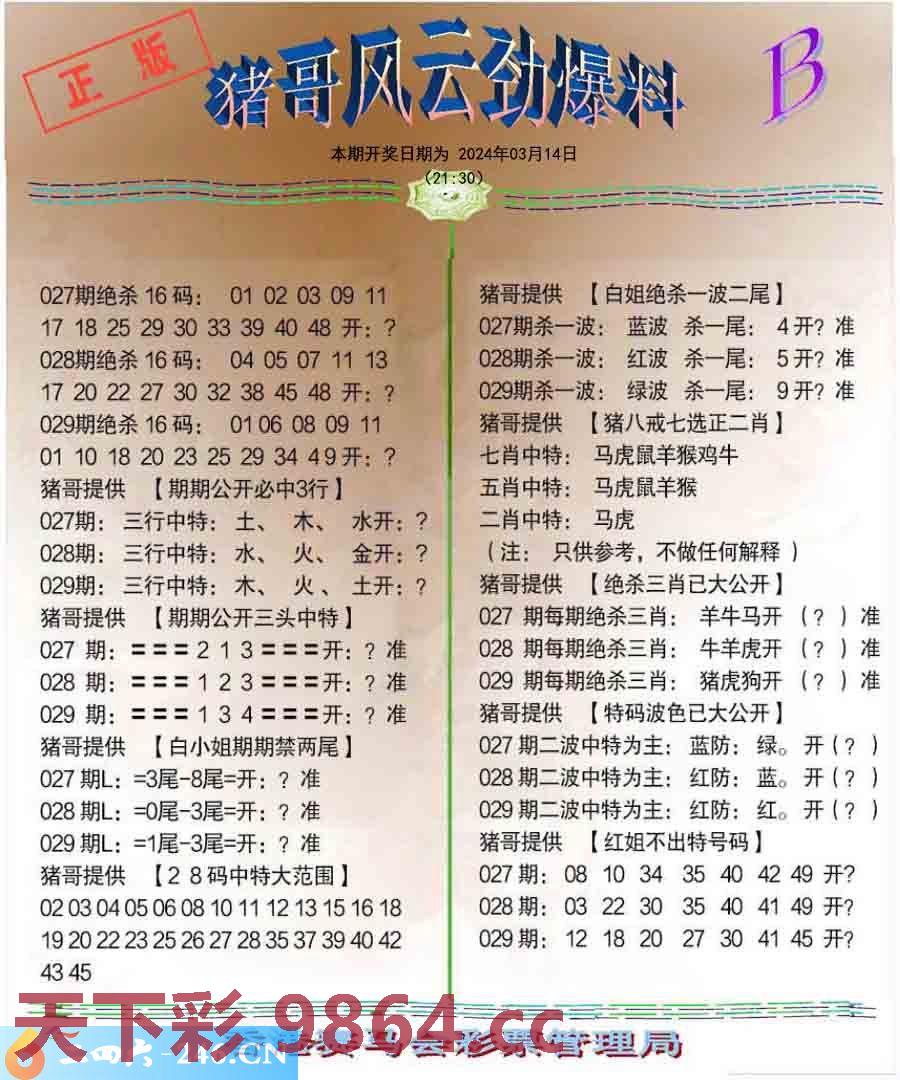 正版
猪哥风云劲爆料
B
本期开奖日期为 2024年03月14日
(21:30)
027期绝杀16码： 01 02 03 09 11
17 18 25 29 30 33 39 40 48 开：?
028期绝杀16码： 04 05 07 11 13
17 20 22 27 30 32 38 45 48 开：?
029期绝杀16码： 01 06 08 09 11
01 10 18 20 23 25 29 34 49开：?
猪哥提供 【期期公开必中3行】
027期： 三行中特： 土、 木、 水开：?
028期： 三行中特： 水、 火、 金开：?
029期： 三行中特： 木、 火、 土开：?
猪哥提供 【期期公开三头中特】
027 期：===213===开：? 准
028 期：===123===开：? 准
029 期：===134===开：? 准
猪哥提供 【白小姐期期禁两尾】
027期L：=3尾-8尾=开：? 准
028期L：=0尾-3尾=开：? 准
029期L：=1尾-3尾=开：? 准
猪哥提供 【28码中特大范围】
02 03 04 05 06 08 10 11 12 13 15 16 18
19 20 22 23 25 26 27 28 35 37 39 40 42
43 45
猪哥提供 【白姐绝杀一波二尾】
027期杀一波： 蓝波 杀一尾： 4开? 准
028期杀一波： 红波 杀一尾： 5开? 准
029期杀一波： 绿波 杀一尾： 9开? 准
猪哥提供 【猪八戒七选正二肖】
七肖中特： 马虎鼠羊猴鸡牛
五肖中特： 马虎鼠羊猴
二肖中特： 马虎
（注： 只供参考，不做任何解释）
猪哥提供 【绝杀三肖已大公开】
027 期每期绝杀三肖： 羊牛马开 （?）准
028 期每期绝杀三肖： 牛羊虎开 （?）准
029 期每期绝杀三肖： 猪虎狗开 （?）准
猪哥提供 【特码波色已大公开】
027期二波中特为主：蓝防：绿。开(?)
028期二波中特为主：红防：蓝。开(?)
029期二波中特为主：红防：红。开(?)
猪哥提供 【红姐不出特号码】
027期： 08 10 34 35 40 42 49 开?
028期： 03 22 30 35 40 41 49 开?
029期： 12 18 20 27 30 41 45 开?
天下彩.9864.cc
二四六-246.CN
赛马会彩票管理局